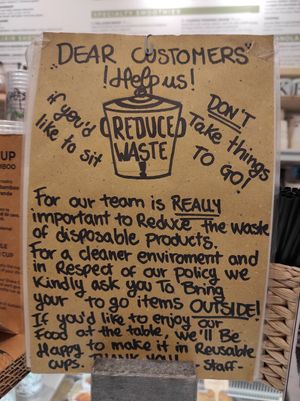 "DEAR CUSTOMERS"
!Help us!
if you'd like to sit
REDUCE
WASTE
DON'T
Take things
TO GO!
For our team is REALLY
important to Reduce the waste
of disposable products.
For a cleaner enviroment and
in Respect of our policy we
Kindly ask you To Bring
your to go items OUTSIDE!
If you'd like to enjoy our
Food at the table, we'll Be
Happy to make it in Reusable
cups. THANK YOU! - Staff -
CUP